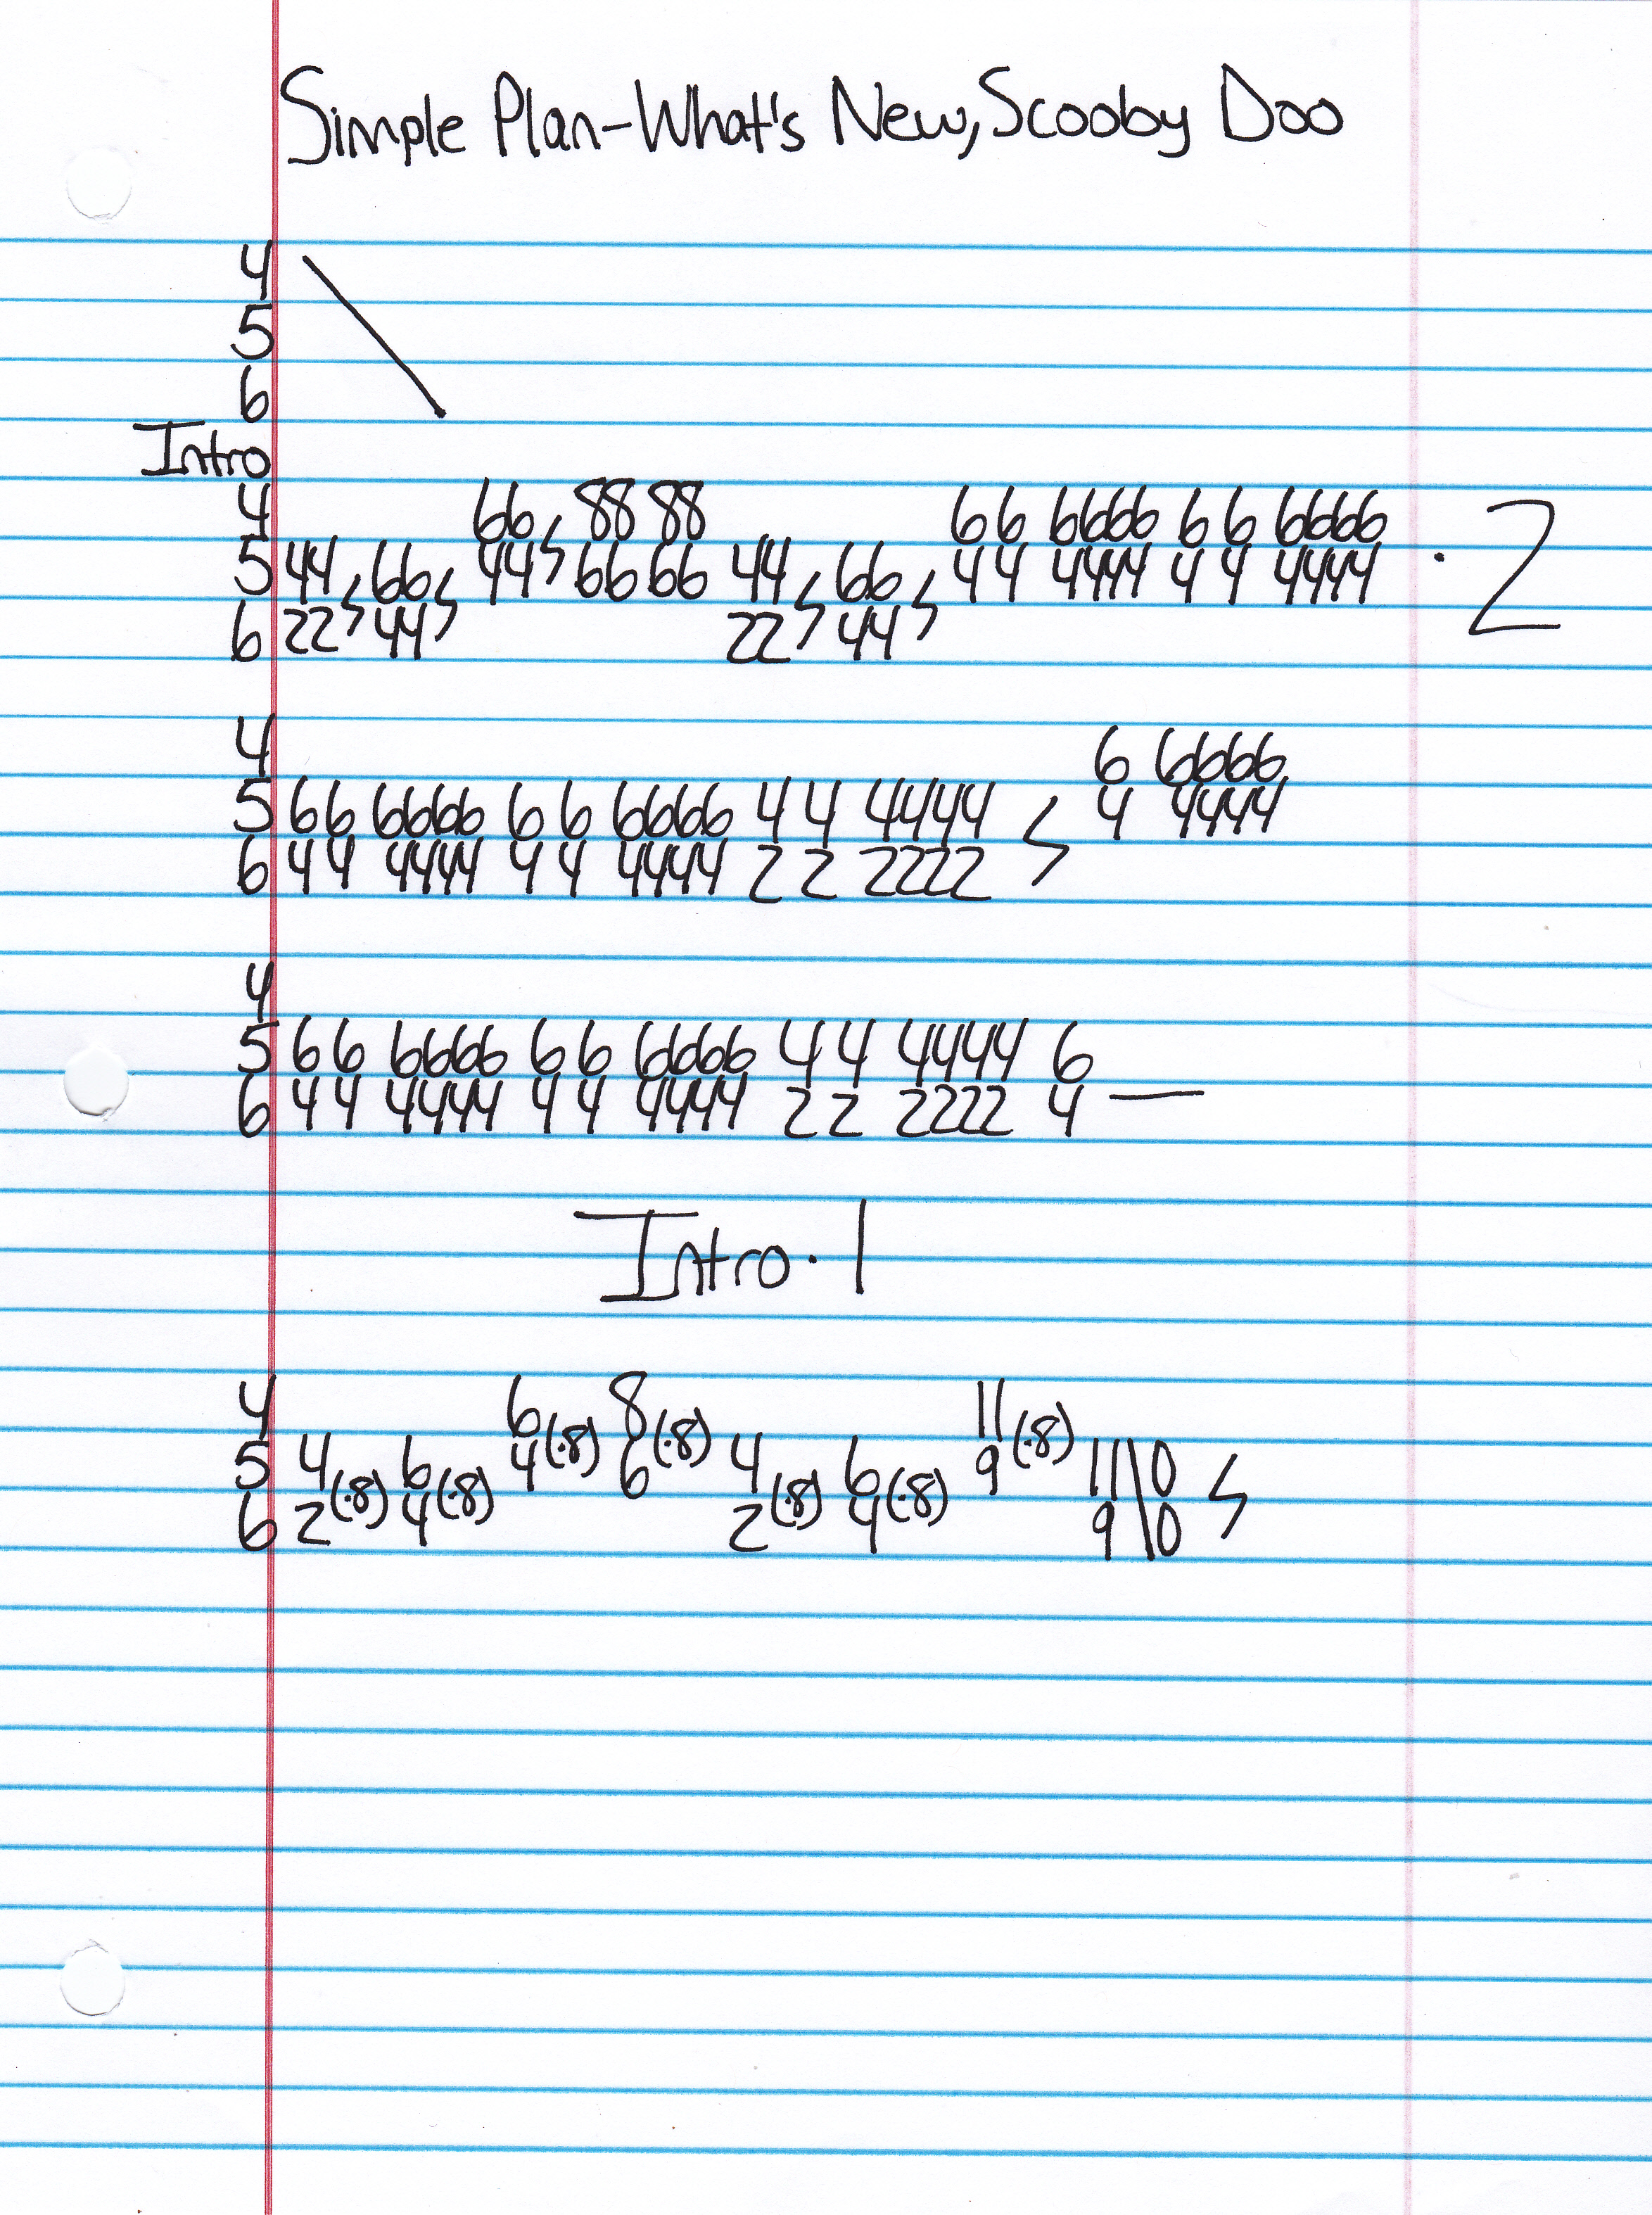 Simple Plan-What's New, Scooby Doo
4
5
6
Intro
4 66, 88 88 66 6666 6 6 6666
5 44, 66, 44 66 66 44, 66, 44 4444 4 4 4444 · 2
6 22 44 22 44
4 6 6666
5 66 6666 6 6 6666 4 4 4444 4 4444
6 44 4444 4 4 4444 2 2 2222
4
5 66 6666 6 6 6666 4 4 4444 6
6 44 4444 4 4 4444 2 2 2222 4 —
Intro · 1
4 6 (·8) 8 (·8) 11 (·8)
5 4 (·8) 6 (·8) 4 6 4 (·8) 6 (·8) 9 11\0
6 2 4 2 4 9\0